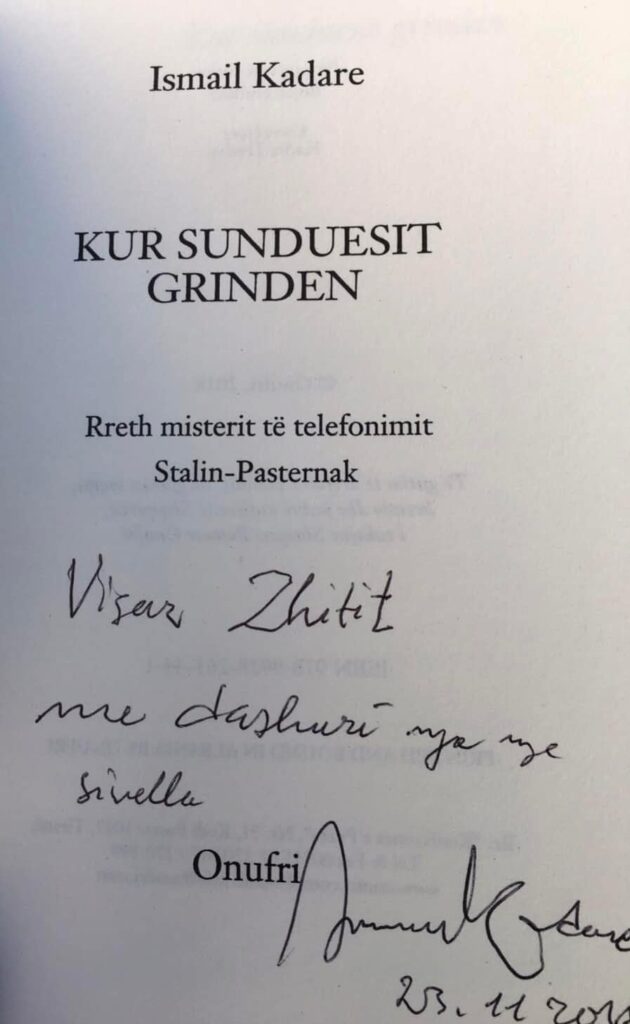 Ismail Kadare
KUR SUNDUESIT
GRINDEN
Rreth misterit të telefonimit
Stalin-Pasternak
Visar Zhitit
me dashuri nga nje
sivella
Onufri
Kadare
23. 11